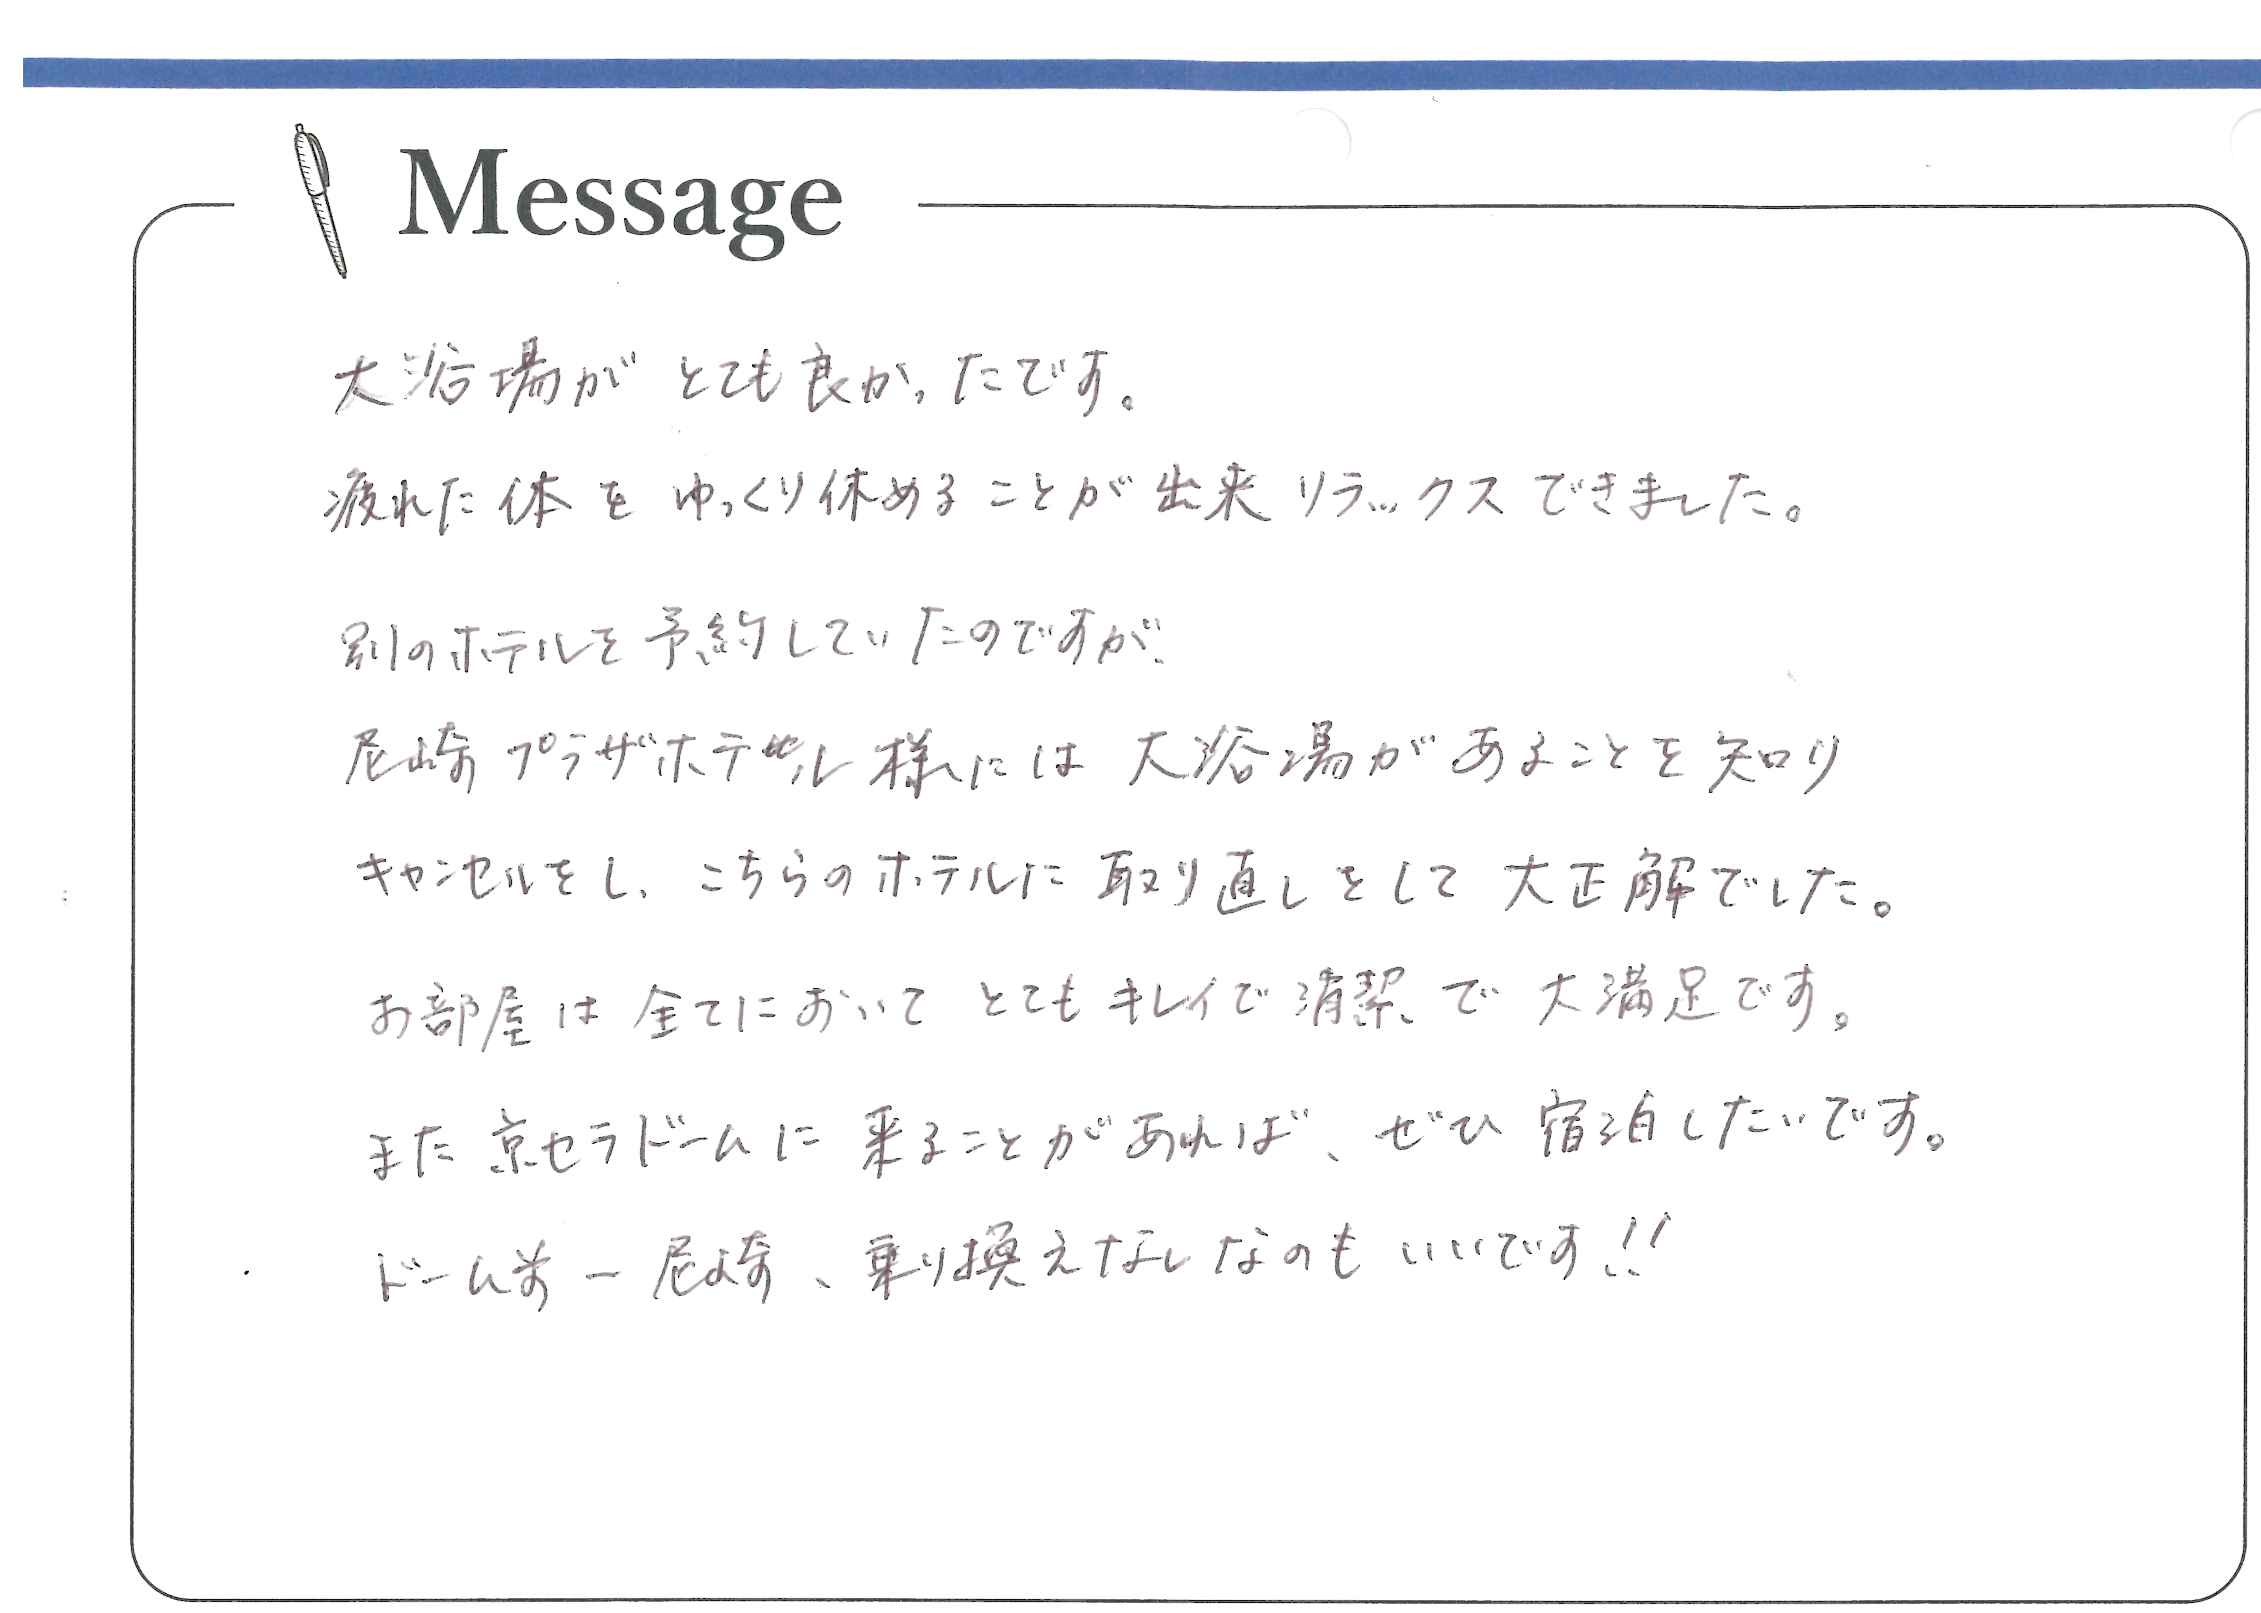 Message
大浴場がとても良かったです。
疲れた体をゆっくり休めることが出来リラックスできました。
別のホテルを予約していたのですが、
尼崎プラザホテル様には大浴場があることを知り
キャンセルをし、こちらのホテルに取り直しをして大正解でした。
お部屋は全てにおいてとてもキレイで清潔で大満足です。
また京セラドームに来ることがあれば、ぜひ宿泊したいです。
ドーム前ー尼崎、乗り換えなしなのもいいです!!